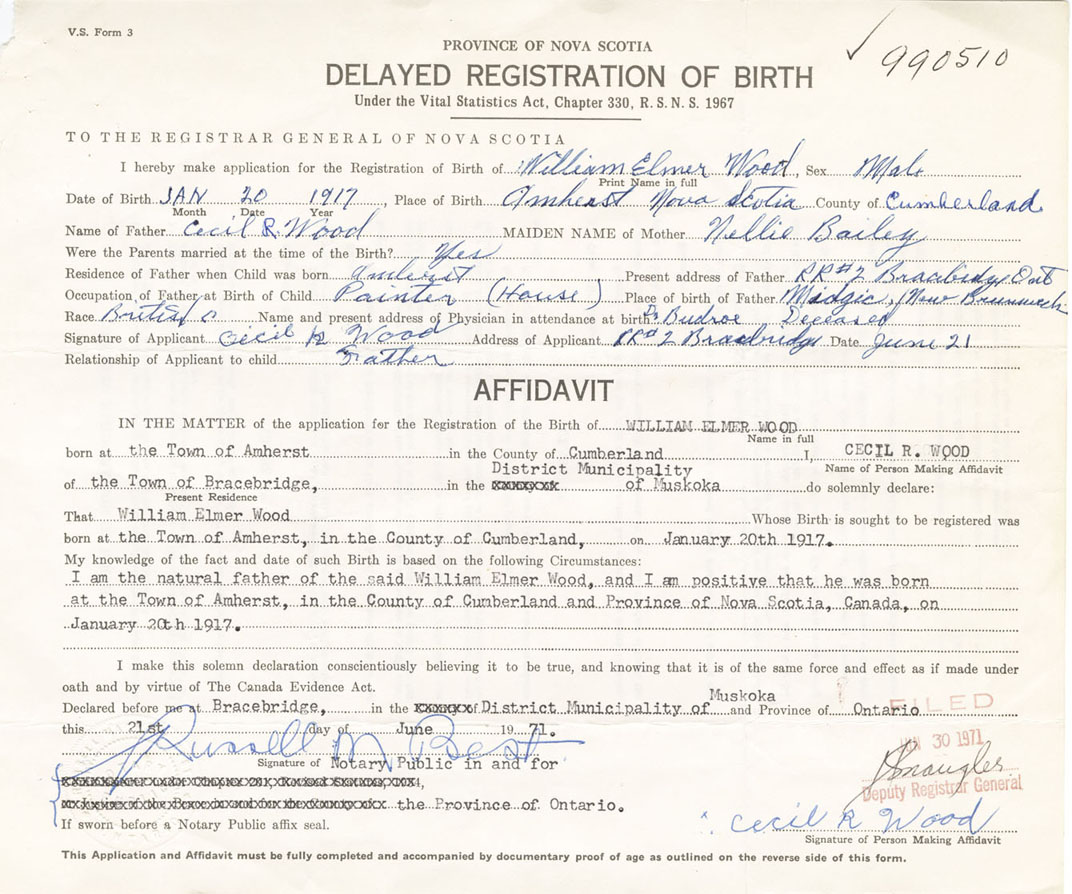 V.S. Form 3
PROVINCE OF NOVA SCOTIA
990510
DELAYED REGISTRATION OF BIRTH
Under the Vital Statistics Act, Chapter 330, R.S.N.S. 1967
TO THE REGISTRAR GENERAL OF NOVA SCOTIA
I hereby make application for the Registration of Birth of William Elmer Wood, Sex Male
Print Name in full
Date of Birth JAN 20 1917, Place of Birth Amherst Nova Scotia County of Cumberland
Month Date Year
Name of Father Cecil R. Wood MAIDEN NAME of Mother Nellie Bailey
Were the Parents married at the time of the Birth? Yes
Residence of Father when Child was born Amherst Present address of Father RR#2 Bracebridge Ont
Occupation of Father at Birth of Child Painter (House) Place of birth of Father Midgic, New Brunswick
Race British Name and present address of Physician in attendance at birth Dr Budroe Deceased
Signature of Applicant Cecil R Wood Address of Applicant RR#2 Bracebridge Date June 21
Relationship of Applicant to child Father
AFFIDAVIT
IN THE MATTER of the application for the Registration of the Birth of WILLIAM ELMER WOOD
Name in full
born at the Town of Amherst in the County of Cumberland I, CECIL R. WOOD
District Municipality Name of Person Making Affidavit
of the Town of Bracebridge, in the of Muskoka do solemnly declare:
Present Residence
That William Elmer Wood Whose Birth is sought to be registered was
born at the Town of Amherst, in the County of Cumberland, on January 20th 1917.
My knowledge of the fact and date of such Birth is based on the following Circumstances:
I am the natural father of the said William Elmer Wood, and I am positive that he was born
at the Town of Amherst, in the County of Cumberland and Province of Nova Scotia, Canada, on
January 20th 1917.
I make this solemn declaration conscientiously believing it to be true, and knowing that it is of the same force and effect as if made under
oath and by virtue of The Canada Evidence Act.
Muskoka
Declared before me at Bracebridge, in the District Municipality of and Province of Ontario
FILED
this 21st day of June 1971.
30 1971
Russell M Best
Signature of Notary Public in and for
Deputy Registrar General
the Province of Ontario.
Cecil R Wood
If sworn before a Notary Public affix seal.
Signature of Person Making Affidavit
This Application and Affidavit must be fully completed and accompanied by documentary proof of age as outlined on the reverse side of this form.